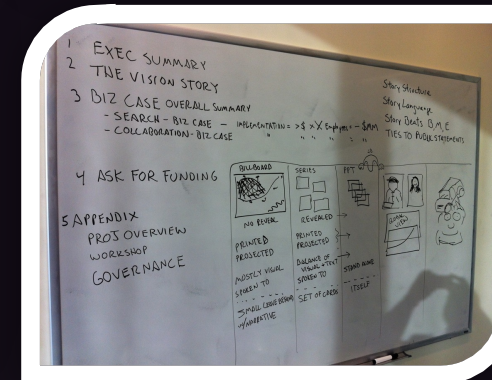 1 EXEC SUMMARY
2 THE VISION STORY
3 BIZ CASE OVERALL SUMMARY
- SEARCH - BIZ CASE - IMPLEMENTATION = >$ x X Employees = - $MM
- COLLABORATION - BIZ CASE " " " " "
4 ASK FOR FUNDING
5 APPENDIX
PROJ OVERVIEW
WORKSHOP
GOVERNANCE
Story Structure
Story Language
Story Beats B, M, E
TIES TO PUBLIC STATEMENTS
BILLBOARD
NO REVEAL
PRINTED
PROJECTED
MOSTLY VISUAL
SPOKEN TO
SMALL
W/NARRATIVE
SERIES
REVEALED
PRINTED
PROJECTED
BALANCE OF
VISUAL + TEXT
SPOKEN TO
SET OF CARDS
PPT
STAND ALONE
ITSELF
VIEW